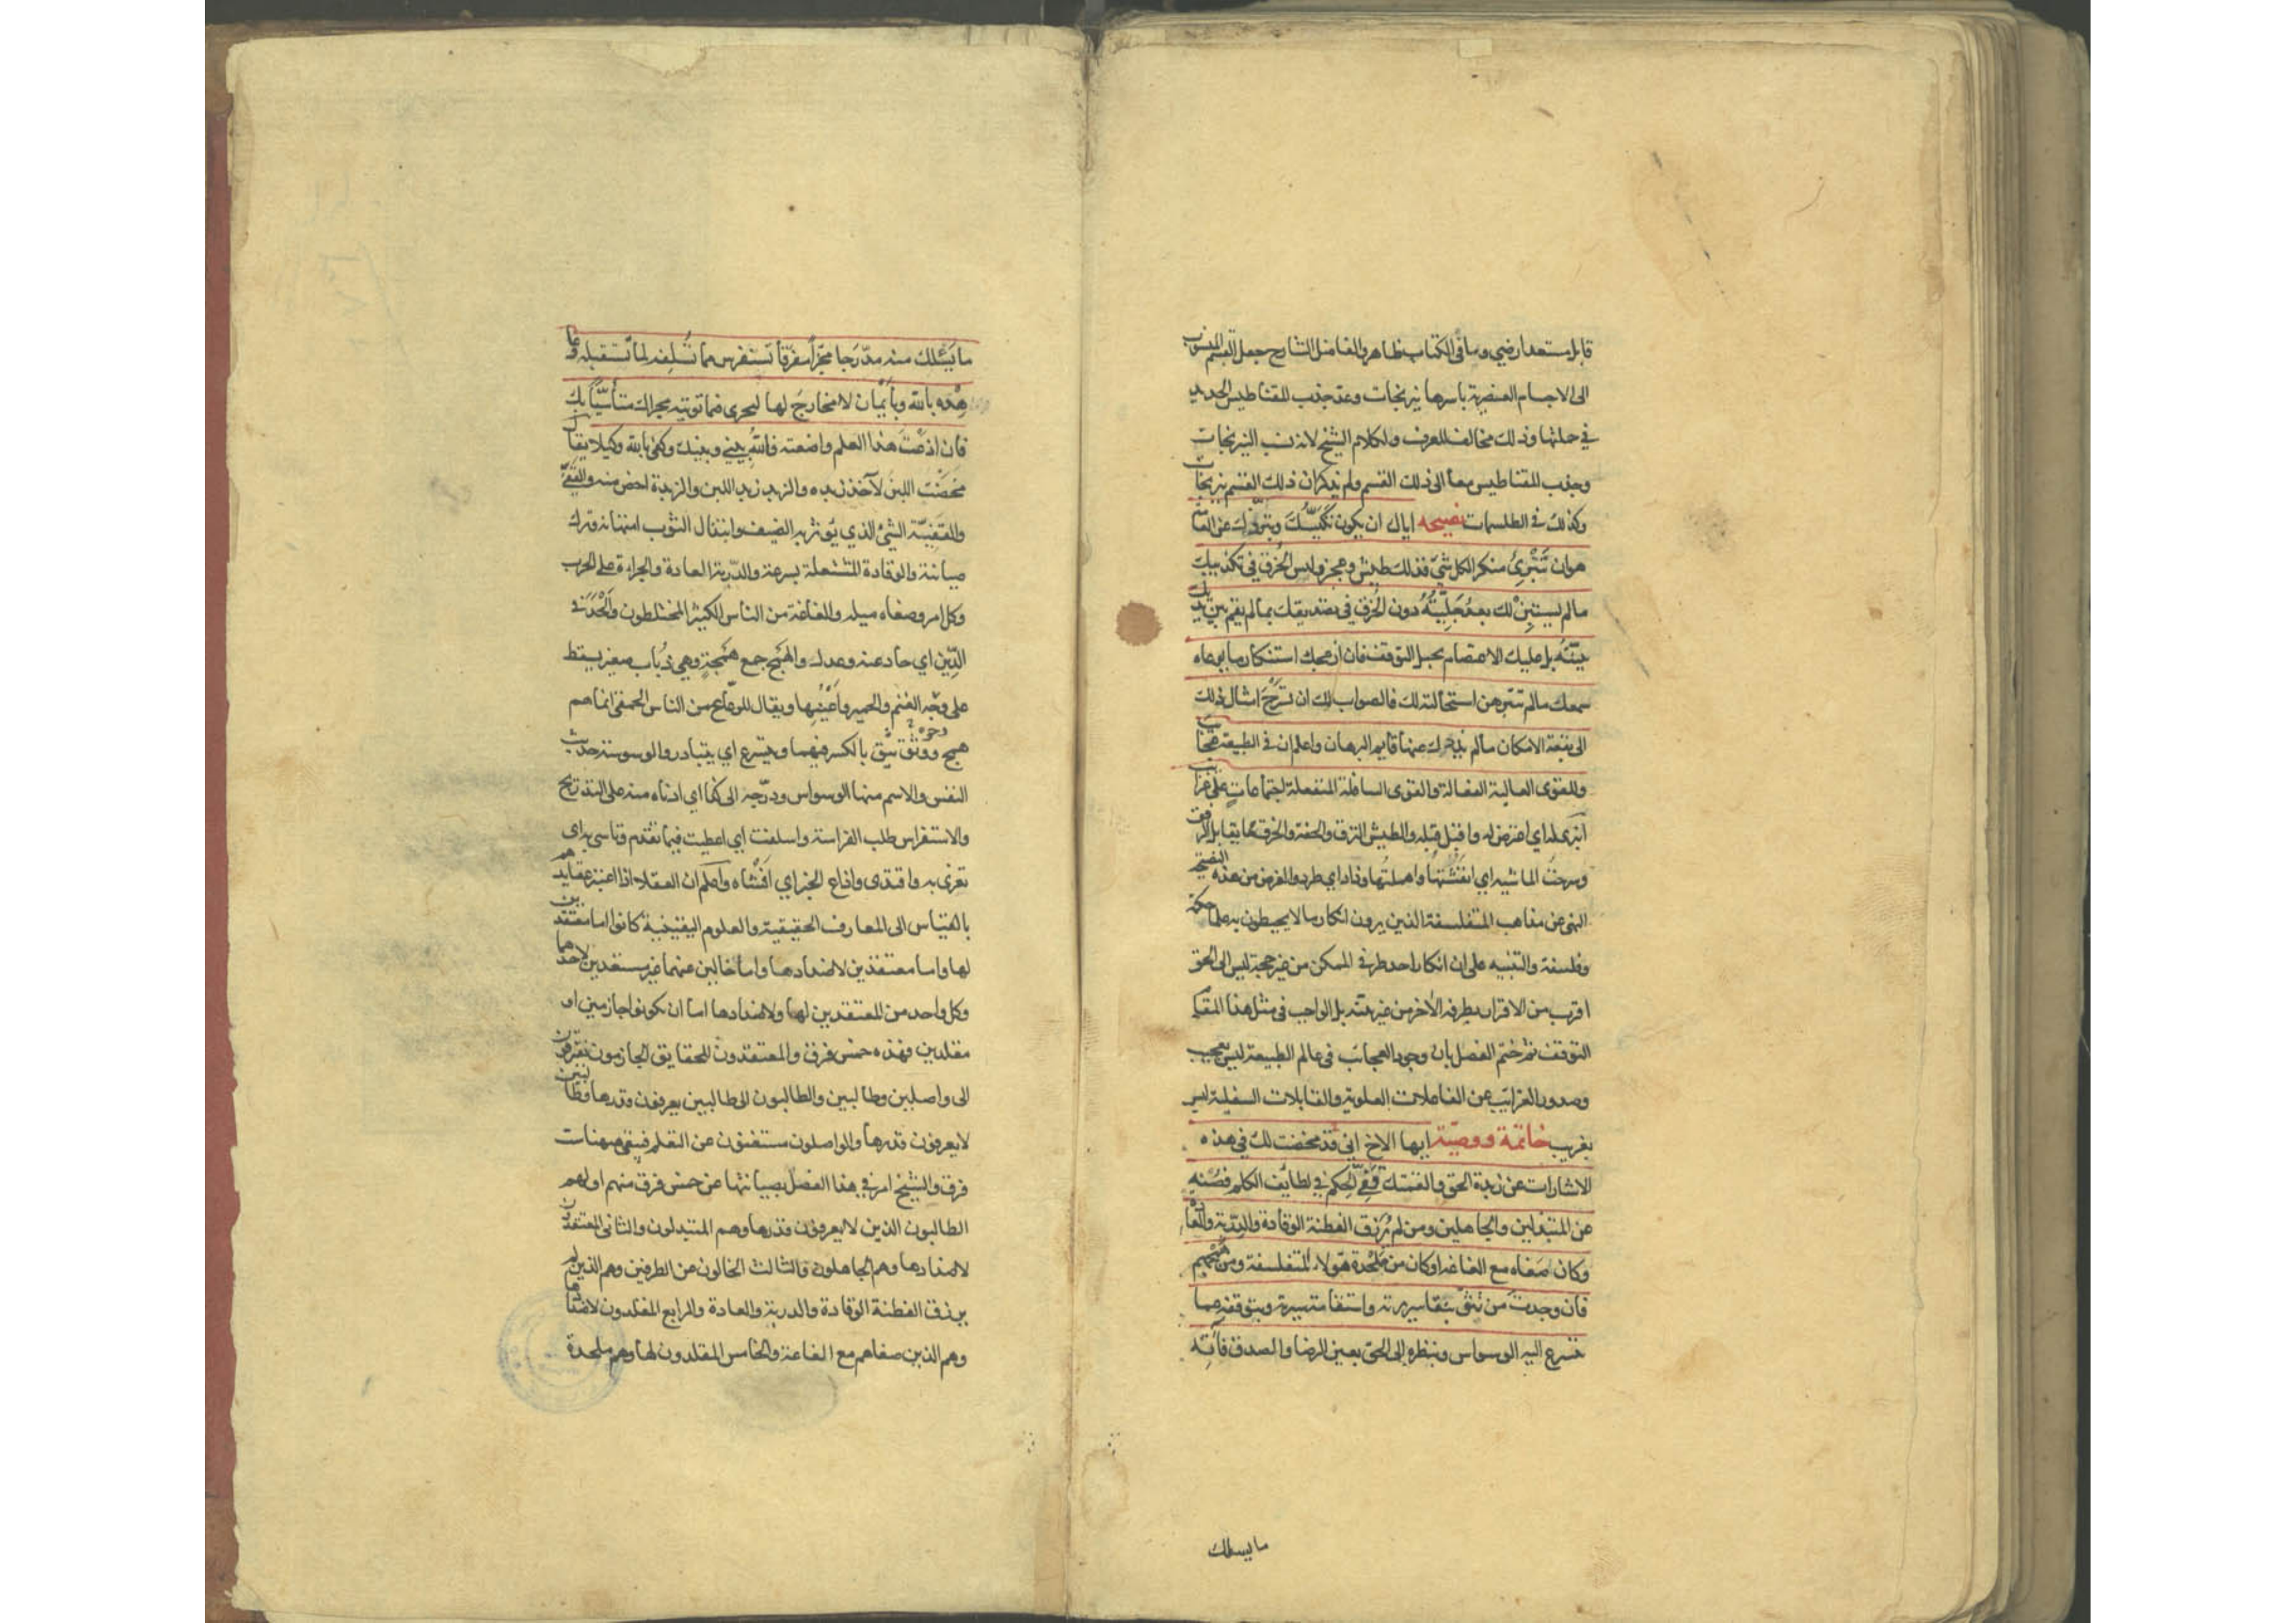 قابل مستعد ارضي وما في الكتاب ظاهر والفاضل الشارح جعل القسم المنسوب
الى الاجسام العنصرية باسرها نيرنجات وعد جذب المقناطيس الحديد
في جملتها وذلك مخالف للعرف ولكلام الشيخ لانه نسب النيرنجات
وجذب المقناطيس معا الى ذلك القسم ولم يذكر ان ذلك القسم نيرنجات
وكذلك في الطلسمات نصيحه اياك ان يكون تكيّسك وتبرّؤك عن العامّة
هو ان تنبرئ منكرا لكل شئ فذلك طيش وعجز وليس الخرق في تكذيبك
مالم يستبن لك بعد جليّته دون الخرق في تصديقك بمالم يقم بين يديك
بينته بل عليك الاعتصام بحبل التوقف فان ازعجك استنكار ما يوعاه
سمعك مالم تتبرهن استحالته لك فالصواب لك ان تسرّح امثال ذلك
الى بقعة الامكان مالم يذدك عنها قايم البرهان واعلم ان في الطبيعة عجايب
وللقوى العالية الفعالة والقوى السافلة المنفعلة اجتماعات على غرايب
انبرى له اي اعترض له واقبل قبله والطيش النزق والخفة والخرق ما يقابل الرفق
وسرحت الماشيه اي انفشتها واهملتها وذاد اي طرد والغرض من هذه النصيحة
النهى عن مذاهب المتفلسفة الذين يرون انكار مالا يحيطون به علما حكمة
وفلسفة والتنبيه على ان انكار احد طرفي الممكن من غير حجة ليس الى الحق
اقرب من الاقرار بطرفه الآخر من غير بينة بل الواجب في مثل هذا المقام
التوقف ثم ختم الفصل بان وجود العجائب في عالم الطبيعة ليس بعجيب
وصدور الغرائب عن الفاعلات العلوية والقابلات السفلية ليس
بغريب خاتمة ووصيّة ايها الاخ اني قد مخضت لك في هذه
الاشارات عن زبدة الحق والقمتك قفيّ الحكم في لطايف الكلم فصنه
عن المبتذلين والجاهلين ومن لم يرزق الفطنة الوقادة والدربة والعادة
وكان صغاه مع الغاغة او كان من ملحدة هؤلاء المتفلسفة ومن همجهم
فان وجدت من تثق بنقا سريرته واستقامة سيرته وبتوقفه عما
يتسرع اليه الوسواس وبنظره الى الحق بعين الرضا والصدق فآته
ما يسئلك
ما يسئلك منه مدّرجا مجزّأ مفرّقا تستفرس مما تسلفه لما تستقبله وعاهده
بالله وبأيمان لا مخارج لها ليجرى فيما توتيه مجراك متأسيا بك
فان اذعت هذا العلم واضعته فالله بيني وبينك وكفى بالله وكيلا يقال
مخضت اللبن لآخذ زبده والزبد زبد اللبن والزبدة اخص منه والقفيّ
والقفيّة الشئ الذي يؤثر به الضيف وابتذال الثوب امتهانه وترك
صيانته والوقادة المشتعلة بسرعة والدّربة العادة والجراءة على الحرب
وكل امر وصغاه ميله والغاغة من الناس الكثير المختلطون وألحد في
الدّين اي حاد عنه وعدل والهمج جمع همجة وهي ذباب صغير يسقط
على وجه الغنم والحمير واعينها ويقال للرعاع من الناس الحمقى انما هم
همج ووثق يثق بالكسر فيهما ويتسرع اي يتبادر والوسوسة حديث
النفس والاسم منها الوسواس ودرّجه الى كذا اي ادناه منه على التدريج
والاستفراس طلب الفراسة واسلفت اي اعطيت فيما تقدم وتاسى به اى
تعزى به واقتدى واذاع الخبر اي افشاه واعلم ان العقلا اذا اعتبر عقايدهم
بالقياس الى المعارف الحقيقية والعلوم اليقينية كانوا اما معتقدين
لها واما معتقدين لاضدادها واما خالين عنهما غير مستعدين لاحدهما
وكل واحد من المعتقدين لها ولاضدادها اما ان يكونوا جازمين او
مقلدين فهذه خمس فرق والمعتقدون للحقايق الجازمون يفترقون
الى واصلين وطالبين والطالبون الى طالبين يعرفون قدرها وطالبين
لا يعرفون قدرها والواصلون مستغنون عن التعلم فبقي ههنا ست
فرق والشيخ امر في هذا الفصل بصيانتها عن خمس فرق منهم اولهم
الطالبون الذين لا يعرفون قدرها وهم المبتذلون والثاني المعتقدون
لاضدادها وهم الجاهلون والثالث الخالون عن الطرفين وهم الذين لم
يرزق الفطنة الوقادة والدربة والعادة والرابع المقلدون لاضدادها
وهم الذين صغاهم مع الغاغة والخامس المقلدون لها وهم ملحدة